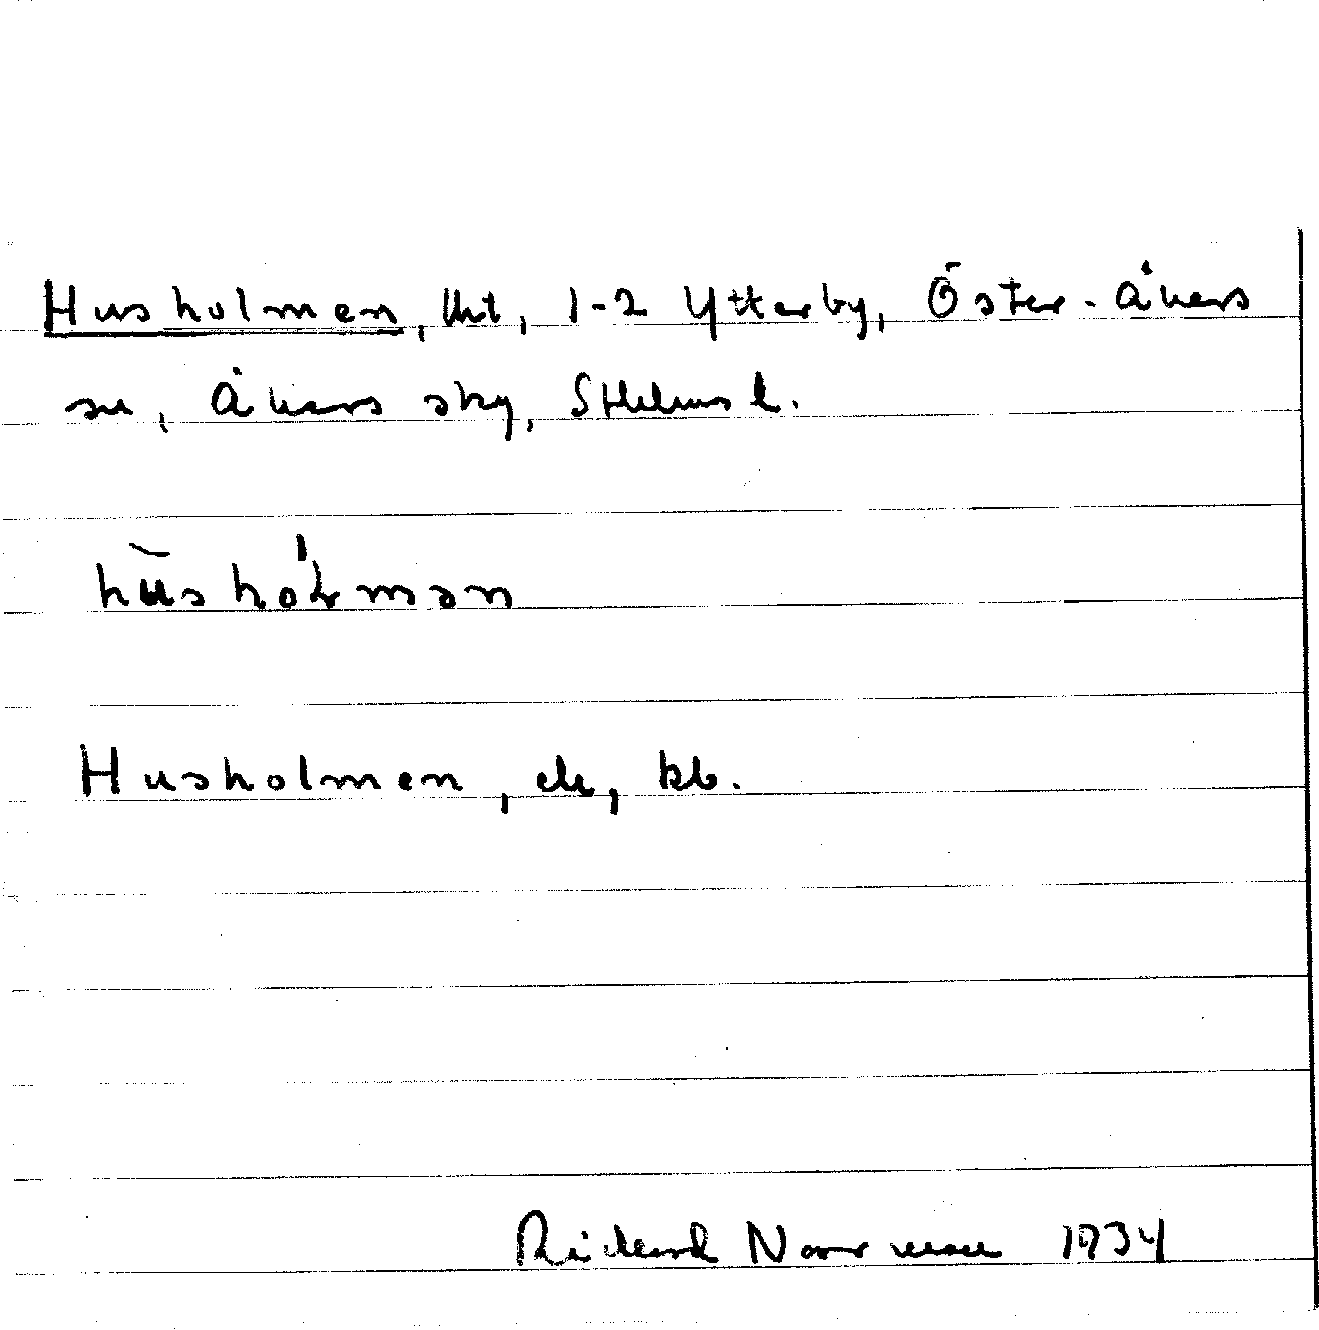 Husholmen, lht, 1-2 Ytterby, Öster-Åkers
sn, Åkers sky, Sthlms l.
hūshółmən
Husholmen, ek, kb.
Rickard Norrman 1934